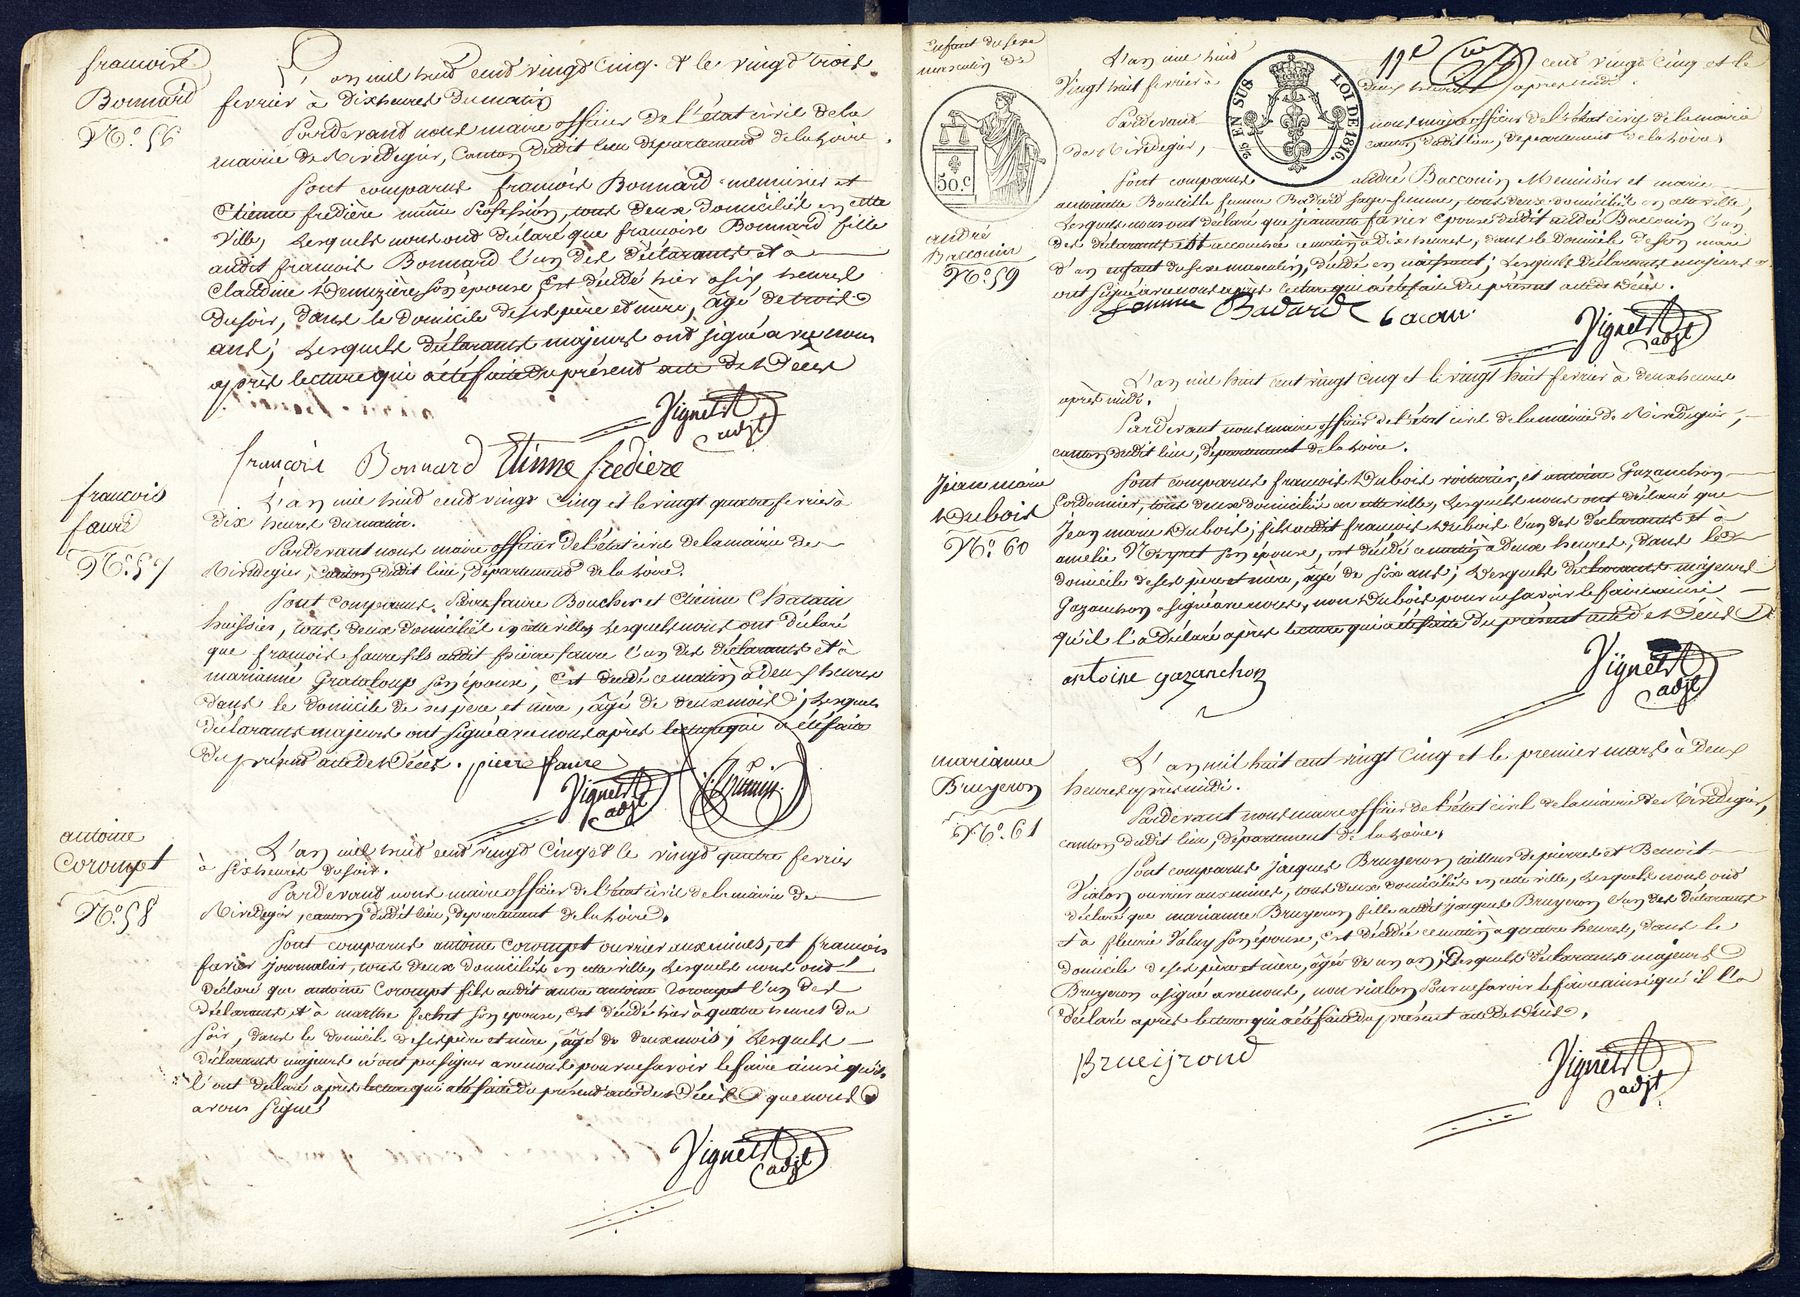 françoise
Bonnard
N.º 56
L'an mil huit cent vingt cinq & le vingt trois
fevrier à dix heures du matin
Pardevant nous maire officier de l'état civil de la
mairie de Rivedegier, Canton dudit lieu département de la Loire.
Sont comparus françois Bonnard menuisier et
Etienne fredière même profession, tous deux domiciliés en cette
ville, lesquels nous ont déclaré que françoise Bonnard fille
audit françois Bonnard l'un des déclarants et à
Claudine son épouse, est décédé hier à six heures
du soir, dans le domicile de ses père et mère, âgé de trois
ans; lesquels déclarants majeurs ont signé avec nous
après lecture qui a été faite du présent acte de Décès
Vignet adjt
françois Bonnard Etienne fredière
francois
faure
N.º 57
L'an mil huit cent vingt cinq et le vingt quatre fevrier à
dix heures du matin.
Pardevant nous maire officier de l'état civil de la mairie de
Rivedegier, canton dudit lieu, département de la Loire.
Sont comparus pierre faure Boucher et Etienne Chatain
huissier, tous deux domiciliés en cette ville, lesquels nous ont déclaré
que françois faure fils audit pierre faure l'un des déclarants et à
marianne Grataloup son épouse, est décédé ce matin à deux heures
dans le domicile de ses père et mère, âgé de deux mois; lesquels
déclarants majeurs ont signé avec nous après lecture qui a été faite
du présent acte de Décès. pierre faure
Vignet adjt
antoine
Corompt
N.º 58
L'an mil huit cent vingt cinq et le vingt quatre fevrier
à six heures du soir.
Pardevant nous maire officier de l'état civil de la mairie de
Rivedegier, canton dudit lieu, département de la Loire.
Sont comparus antoine Corompt ouvrier aux mines, et françois
favier journalier, tous deux domiciliés en cette ville, lesquels nous ont
déclaré que antoine Corompt fils audit autre antoine Corompt l'un des
déclarants et à marthe son épouse, est décédé hier à quatre heures du
soir, dans le domicile de ses père et mère, âgé de deux mois; lesquels
déclarants majeurs n'ont pas signé avec nous pour ne savoir le faire ainsi qu'ils
l'ont déclaré après lecture qui a été faite du présent acte de Décès que nous
avons signé
Vignet adjt
Enfant du sexe
masculin de
50 C
andré
Bacconin
N.º 59
L'an mil huit cent vingt cinq et le
Vingt huit fevrier à deux heures après midi.
2/5 EN SUS LOI DE 1816.
Pardevant nous maire officier de l'état civil de la mairie
de Rivedegier, canton dudit lieu, département de la Loire
Sont comparus andré Bacconin Menuisier et marie
antoinette Bouteille femme Badard sage femme, tous deux domiciliés en cette ville,
lesquels nous ont déclaré que jeannette favier épouse dudit andré Bacconin l'un
des déclarants est accouchée ce matin à dix heures, dans le domicile de son mari
d'un enfant du sexe masculin, décédé en naissant; lesquels déclarants majeurs
ont signé avec nous après lecture qui a été faite du présent acte de Décès.
femme Badard Bacconin
Vignet adjt
Jean marie
Dubois
N.º 60
L'an mil huit cent vingt cinq et le vingt huit fevrier à deux heures
après midi.
Pardevant nous maire officier de l'état civil de la mairie de Rivedegier,
canton dudit lieu, département de la Loire.
Sont comparus françois Dubois voiturier, et antoine Gazanchon
Cordonnier, tous deux domiciliés en cette ville, lesquels nous ont déclaré que
Jean marie Dubois, fils audit françois Dubois l'un des déclarants et à
amélie son épouse, est décédé ce matin à deux heures, dans le
domicile de ses père et mère, âgé de six ans; lesquels déclarants majeurs
Gazanchon a signé avec nous, non Dubois pour ne savoir le faire ainsi
qu'il l'a déclaré après lecture qui a été faite du présent acte de Décès
antoine gazanchon
Vignet adjt
marianne
Bruyeron
N.º 61
L'an mil huit cent vingt cinq et le premier mars à deux
heures après midi.
Pardevant nous maire officier de l'état civil de la mairie de Rivedegier,
canton dudit lieu, département de la Loire.
Sont comparus Jacques Bruyeron tailleur de pierres et Benoit
Vialon ouvrier aux mines, tous deux domiciliés en cette ville, lesquels nous ont
déclaré que marianne Bruyeron fille audit jacques Bruyeron l'un des déclarants
et à fleurie Valuy son épouse, est décédée ce matin à quatre heures, dans le
domicile de ses père et mère, âgée de un an; lesquels déclarants majeurs
Bruyeron a signé avec nous, non vialon pour ne savoir le faire ainsi qu'il l'a
déclaré après lecture qui a été faite du présent acte de Décès.
Brueijrond
Vignet adjt